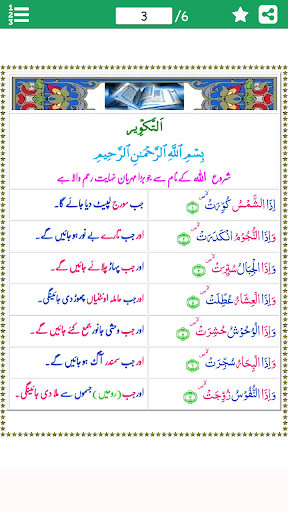 3 /6
اَلتَّكْوِير
بِسْمِ اللّٰهِ الرَّحْمٰنِ الرَّحِيْمِ
شروع اللہ کے نام سے جو بڑا مہربان نہایت رحم والا ہے
اِذَا الشَّمْسُ كُوِّرَتْ ۙ ۱ جب سورج لپیٹ دیا جائے گا۔
وَاِذَا النُّجُوْمُ انْكَدَرَتْ ۙ ۲ اور جب تارے بے نور ہو جائیں گے۔
وَاِذَا الْجِبَالُ سُيِّرَتْ ۙ ۳ اور جب پہاڑ چلائے جائیں گے۔
وَاِذَا الْعِشَارُ عُطِّلَتْ ۙ ۴ اور جب حاملہ اونٹنیاں چھوڑ دی جائینگی۔
وَاِذَا الْوُحُوْشُ حُشِرَتْ ۙ ۵ اور جب وحشی جانور جمع کئے جائیں گے۔
وَاِذَا الْبِحَارُ سُجِّرَتْ ۙ ۶ اور جب سمندر آگ ہو جائیں گے۔
وَاِذَا النُّفُوْسُ زُوِّجَتْ ۙ ۷ اور جب (روحیں) جسموں سے ملا دی جائینگی۔